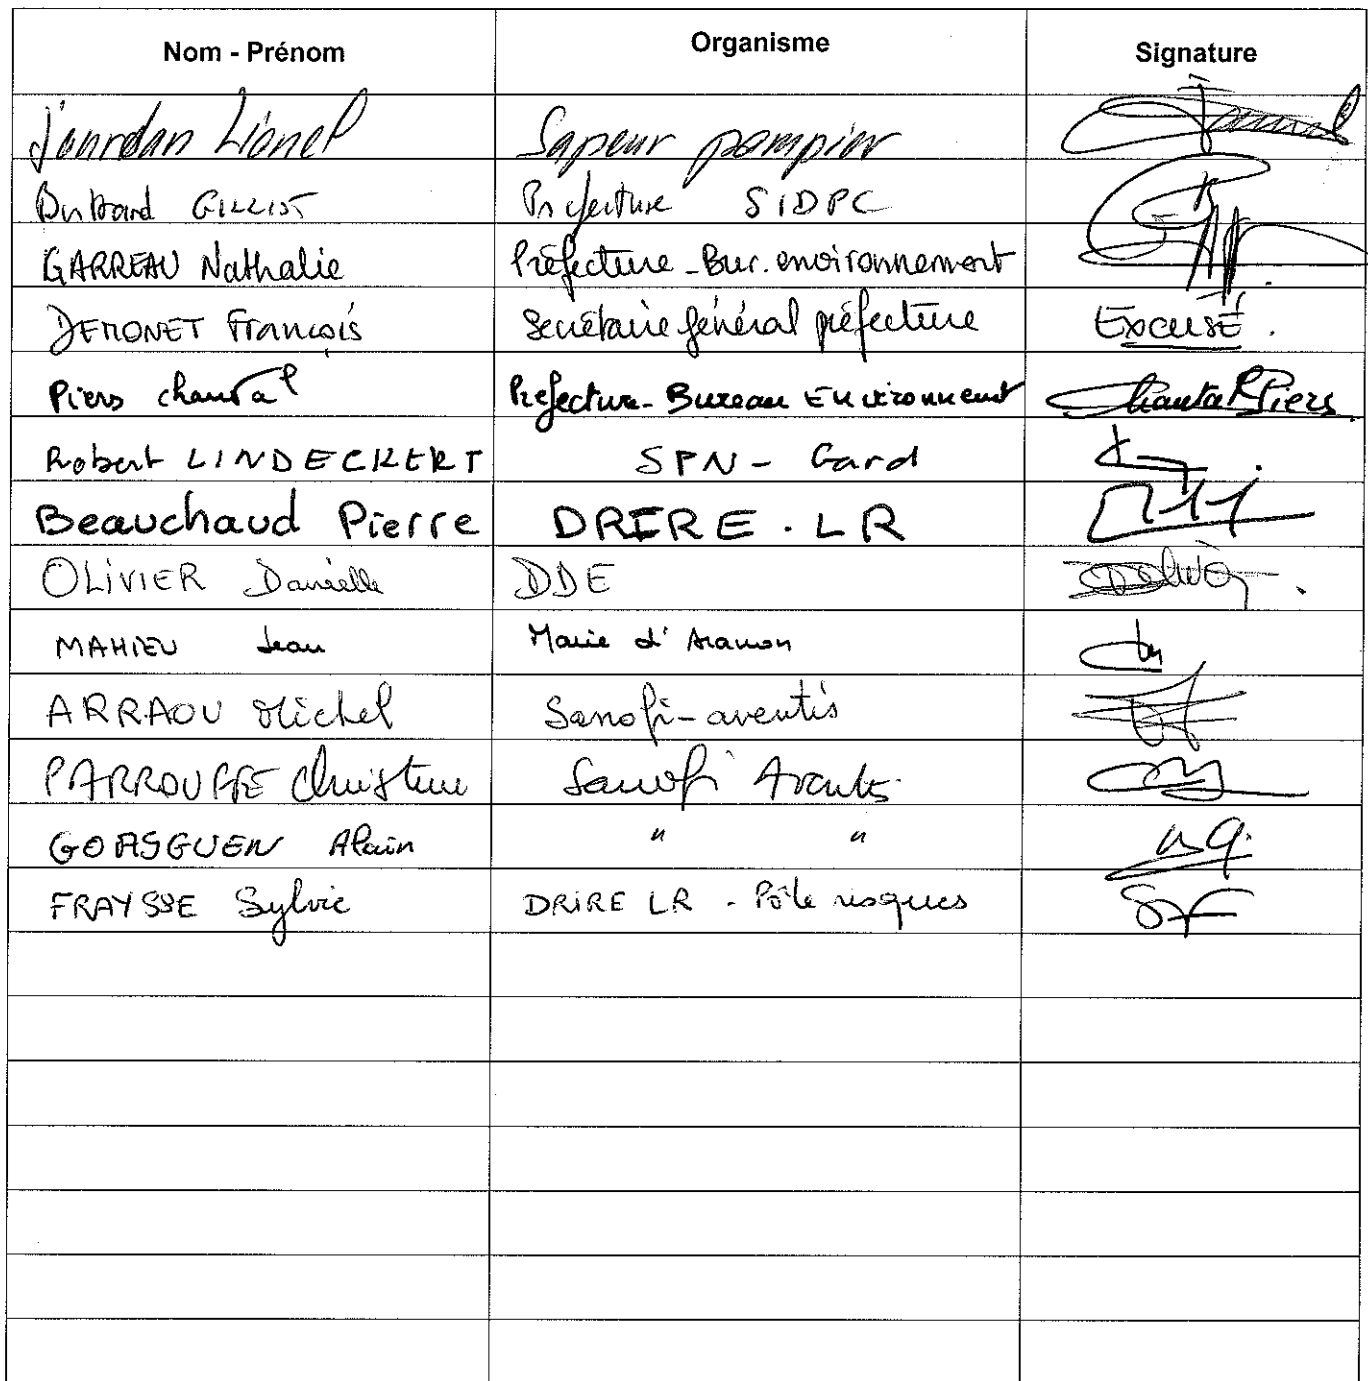 Nom - Prénom Organisme Signature
Jourdan Lionel Sapeur pompier
Bertrand Préfecture SIDPC
GARREAU Nathalie Préfecture - Bur. environnement
DEMONET François Secrétaire général préfecture Excusé.
Piers chantal Prefecture - Bureau Environnement Chantal Piers
Robert LINDECKERT SPN - Gard
Beauchaud Pierre DRIRE . LR
OLIVIER Danielle DDE
MAHIEU Jean Mairie d'Aramon
ARRAOU Michel Sanofi-aventis
Christine Sanofi Aventis
GOASGUEN Alain " "
FRAYSSE Sylvie DRIRE LR - Pôle risques